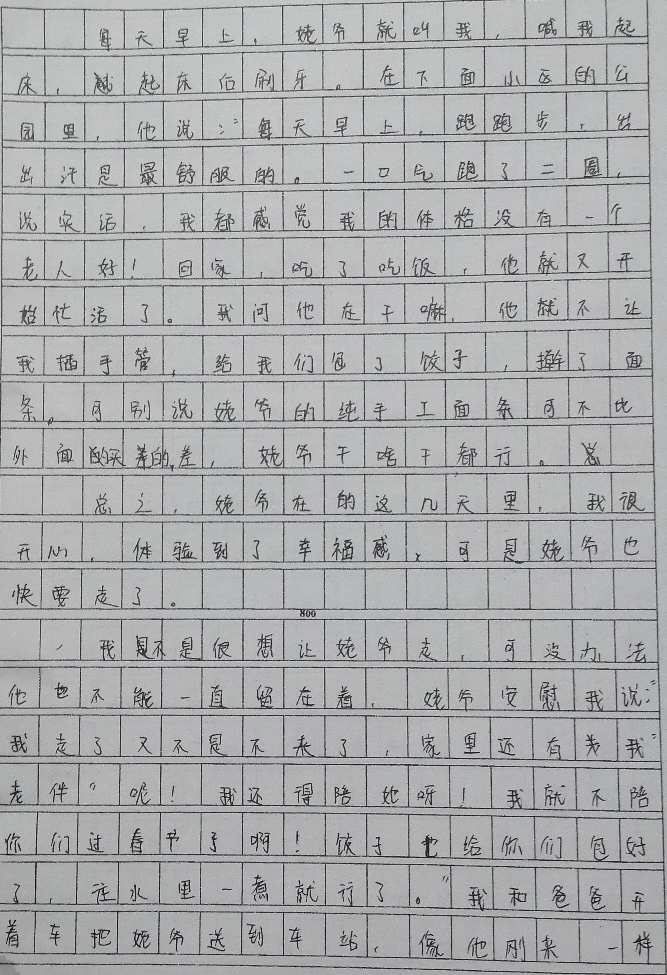 每天早上，姥爷就叫我，喊我起
床，起床后刷牙。在下面小区的公
园里，他说：“每天早上，跑跑步，出
出汗是最舒服的。一口气跑了二圈，
说实话，我都感觉我的体格没有一个
老人好！回家，吃了吃饭，他就又开
始忙活了。我问他在干嘛，他就不让
我插手管，给我们包了饺子，擀了面
条。可别说姥爷的纯手工面条可不比
外面的天差的差，姥爷干啥干都行。总
总之，姥爷在的这几天里，我很
开心，体验到了幸福感，可是姥爷也
快要走了。
800
我是不是很想让姥爷走，可没办法
他也不能一直留在着，姥爷安慰我说：“
我走了又不是不来了，家里还有为我“
老伴”呢！我还得陪她呀！我就不陪
你们过春节了啊！饺子也给你们包好
了，在水里一煮就行了。”我和爸爸开
着车把姥爷送到车站，像他刚来一样